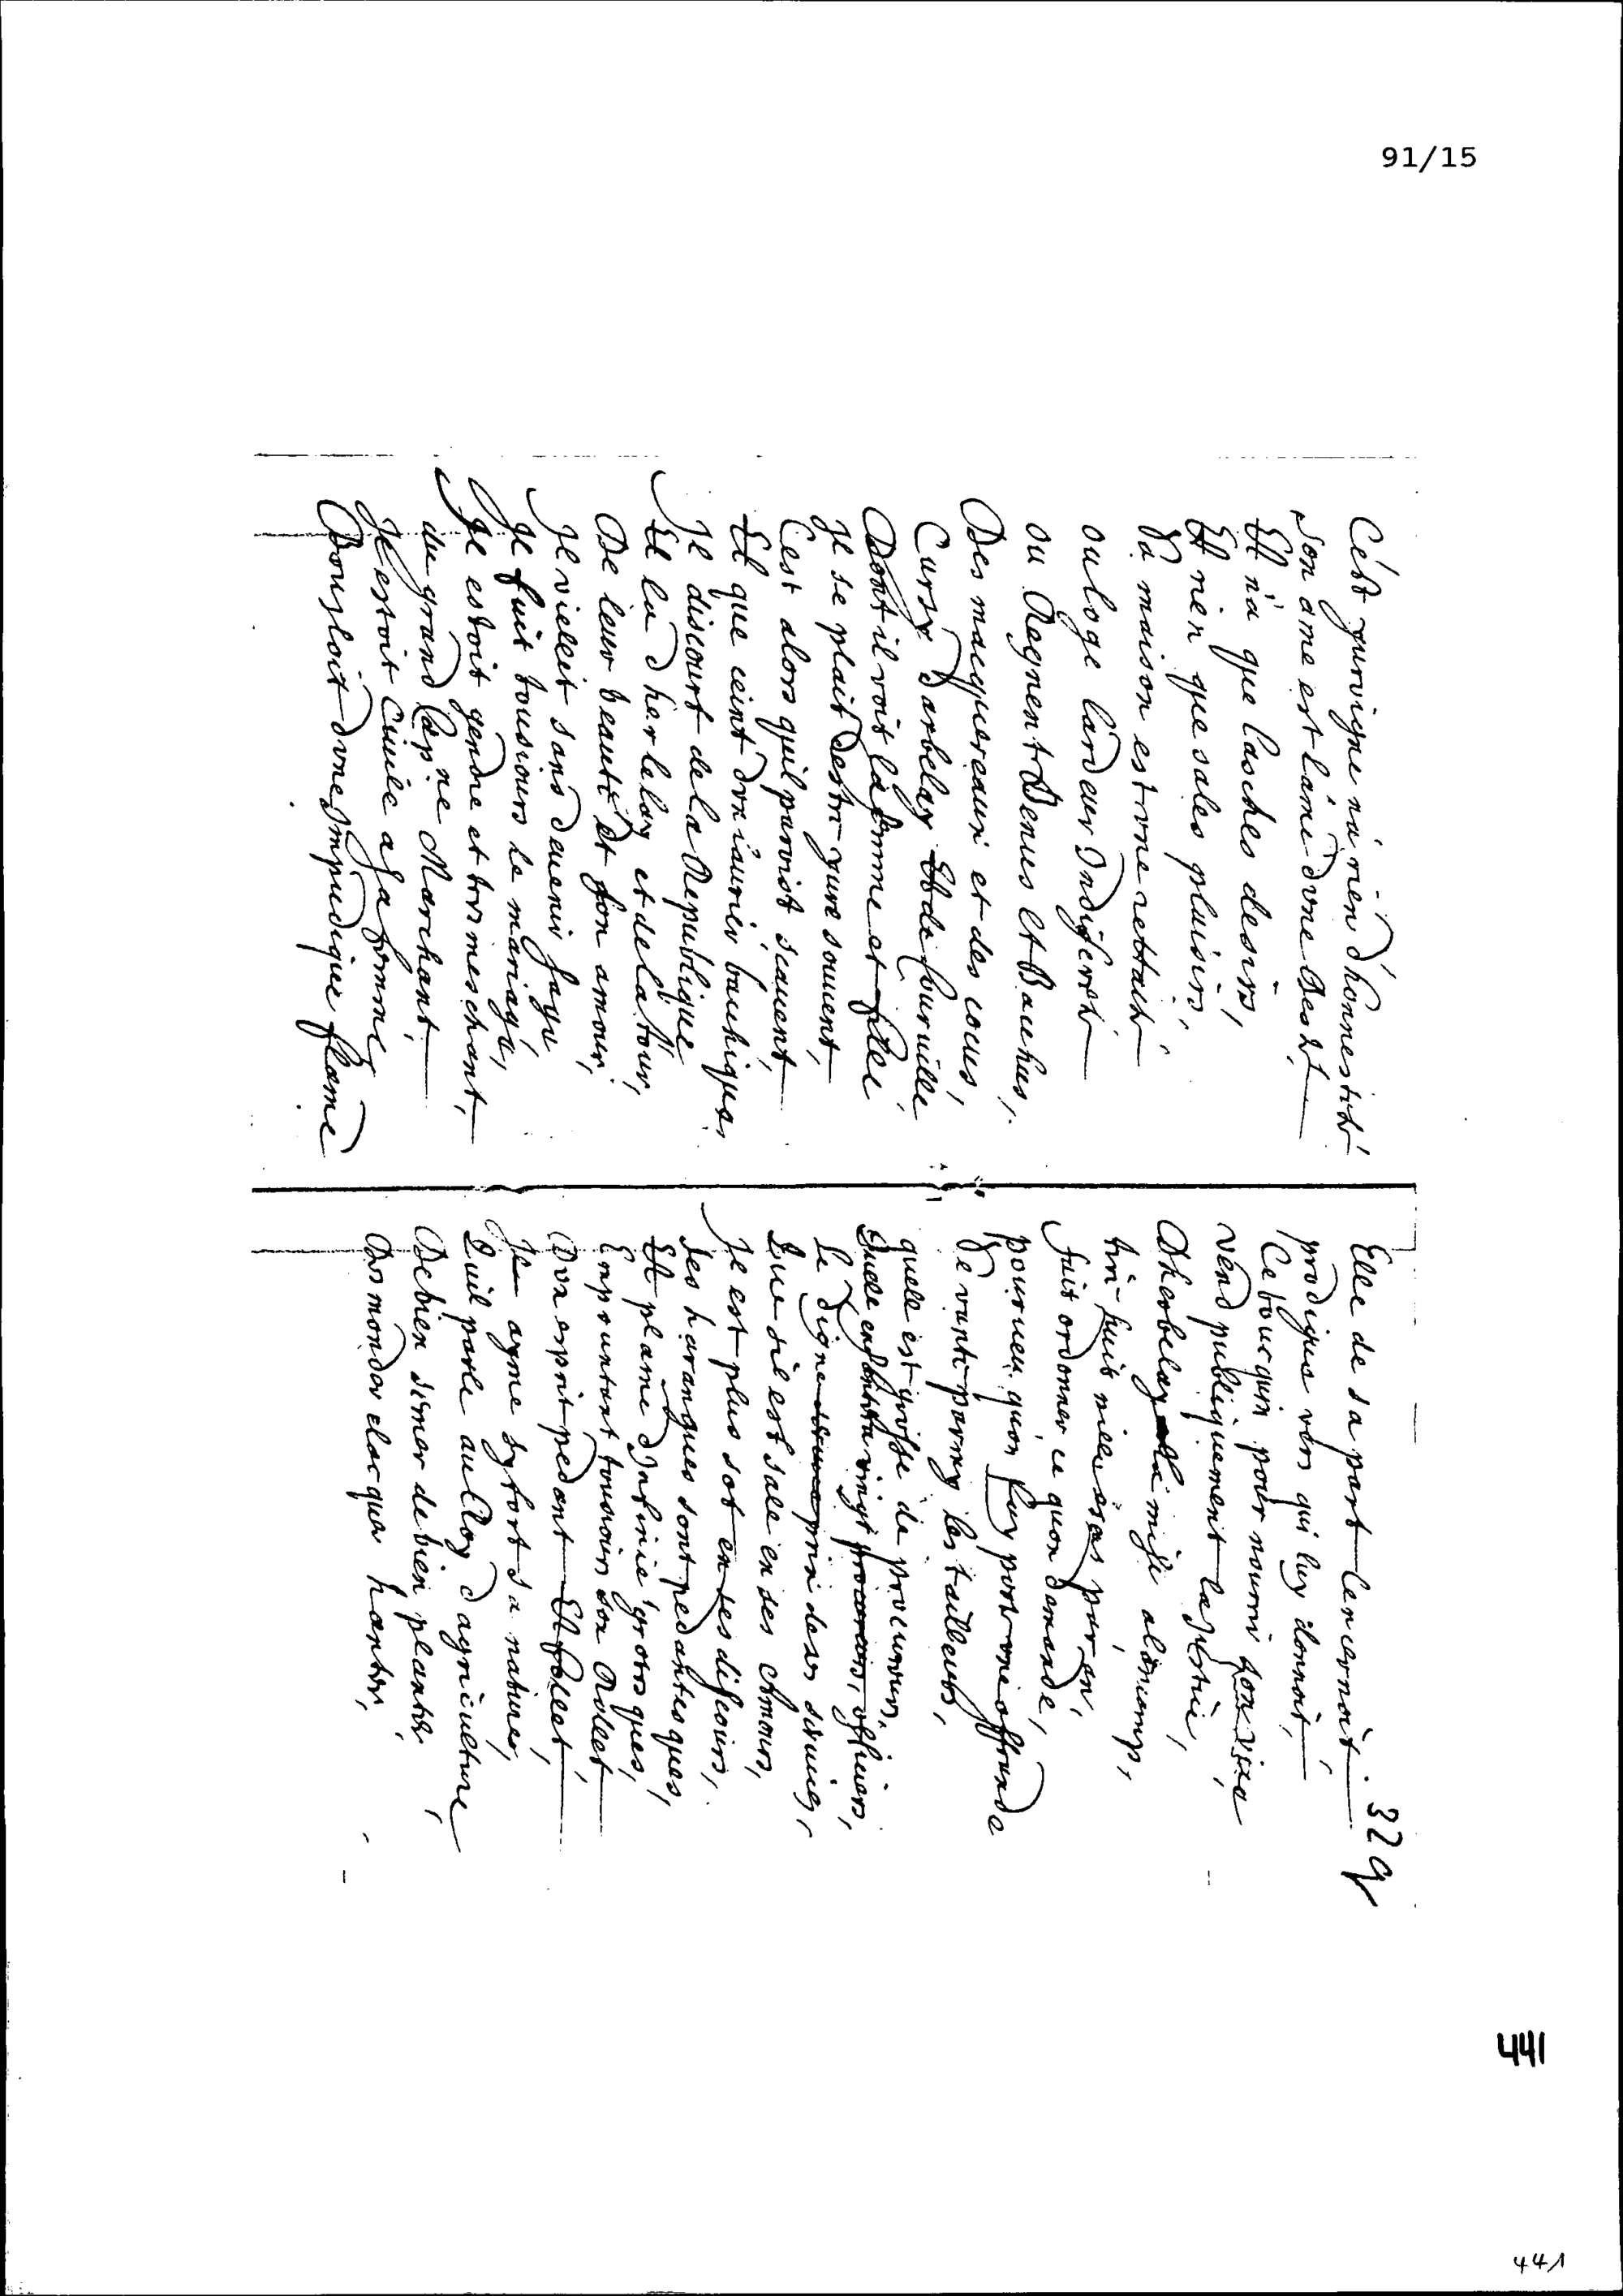 91/15
C'est qurvigne n'a rien d'honnesteté
son ame est l'ame d'une beste
Et n'a que lasches desirs,
Et rien que sales plaisirs,
Sa maison est une retraite
ou loge l'ardeur
ou Regnent Venus et Bacchus,
Des macquereaux et des cocus,
Dont il voit la femme et fille
Il se plait souvent,
C'est alors qu'il paroist scavent
Et que ceint d'un laurier bachique,
Il discourt de la Republique
Et la d'herbelay et de la tour,
De leur beauté et son amour,
Il viellit sans devenir sage
Il fuit tousiours le mariage,
Il estoit gendre et tres meschant,
du grand Marchant,
Il estoit civile a sa femme
Brusloit d'une impudique flame
329
Elle de sa part l'encornoit
prodigue vers qui luy donnoit,
Ce boucquin pour nourrir son vice
vend publiquement la justice,
D'herbelay
fait ordonner ce quon demande,
pourveu quon luy porte une offrande
Se vante parmy les tailleurs,
quelle est grosse de procureurs,
vingt officiers,
Le digne prix de ses services,
Que s'il est sale en ses Amours,
Il est plus sot en ses discours,
Ses harangues sont pedantesques,
Et plaine d'infinie grotesques,
Empruntant tousiours son Rollet
D'un esprit pedant Et follet,
Il ayme sy fort sa nature,
Quil parle au Roy d'agriculture,
De bien semer de bien planter
441
441